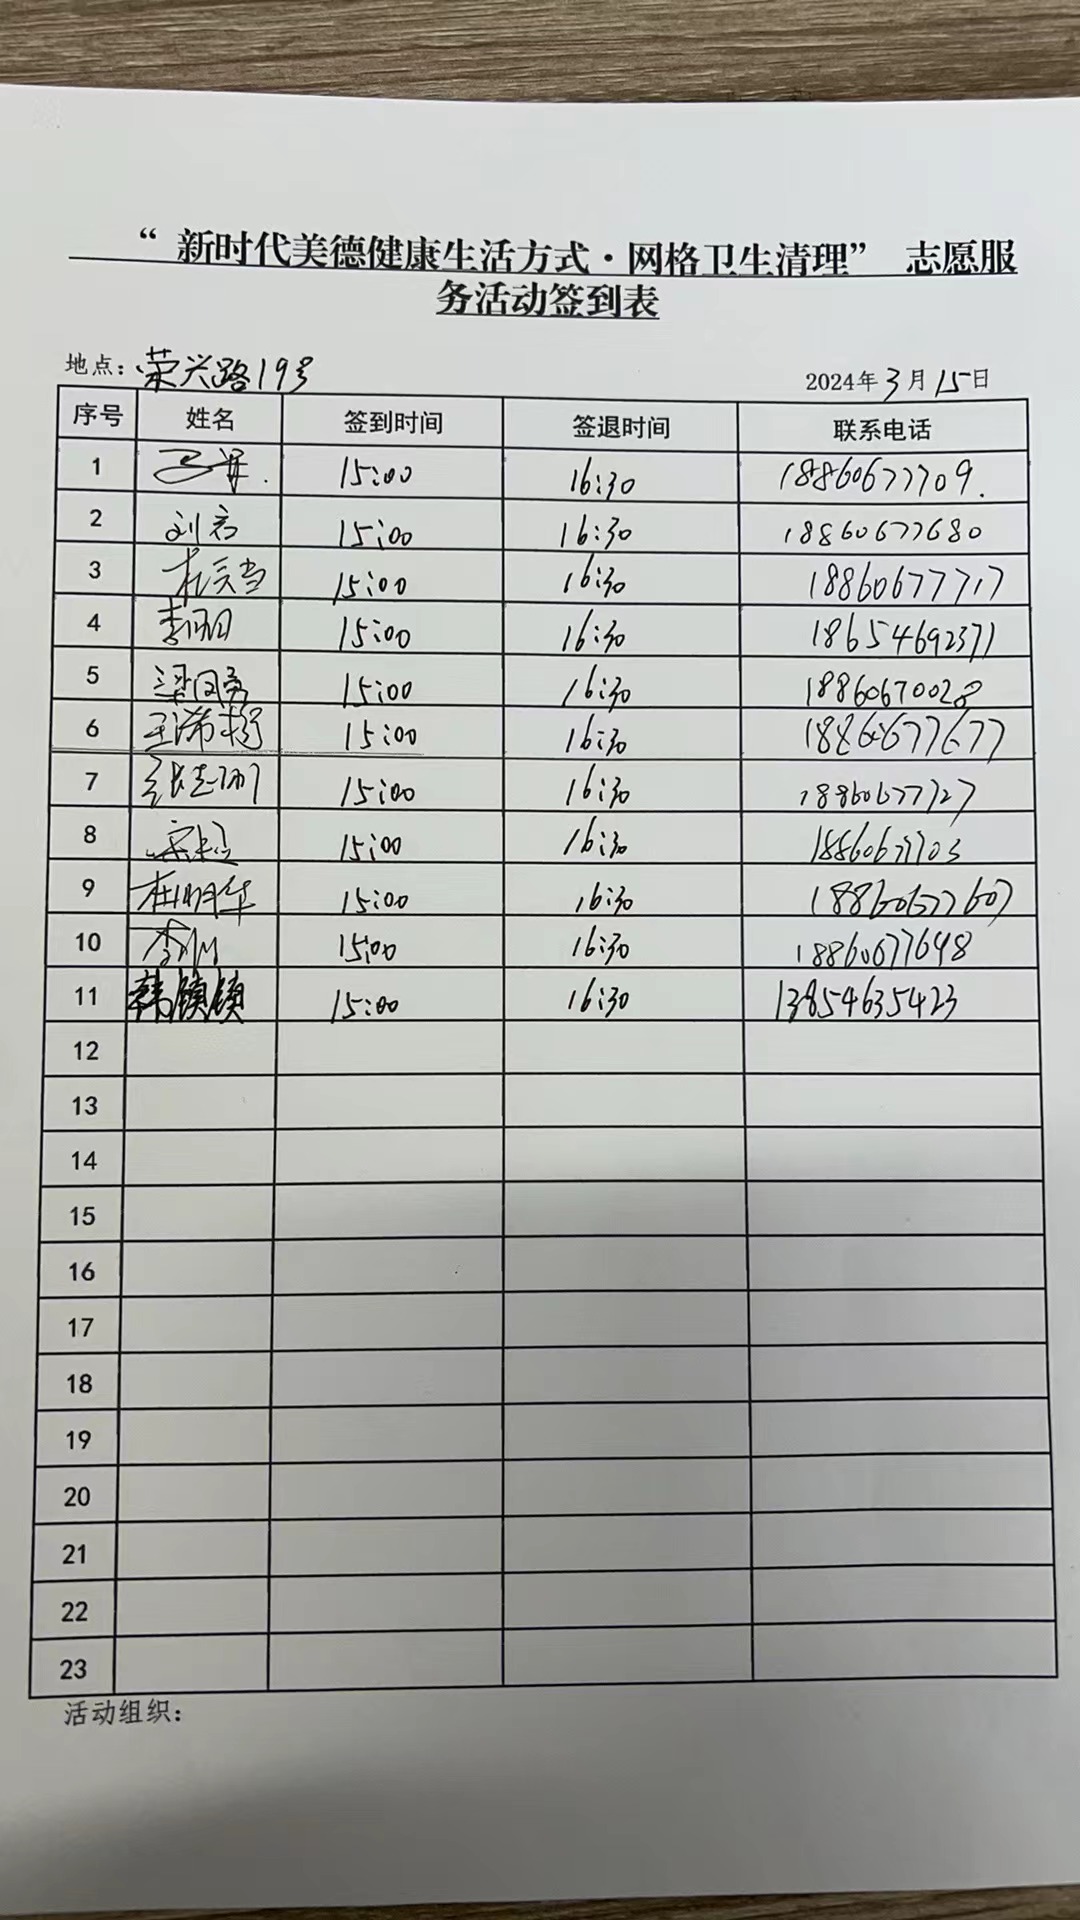 “ 新时代美德健康生活方式·网格卫生清理” 志愿服
务活动签到表
地点：荣兴路19号 2024年3月15日
序号 姓名 签到时间 签退时间 联系电话
1 15:00 16:30 18860677709.
2 刘 15:00 16:30 18860677680
3 15:00 16:30 18860677717
4 李 15:00 16:30 18654692371
5 梁风勇 15:00 16:30 18860670028
6 王沛 15:00 16:30 18860677677
7 张志刚 15:00 16:30 18860677727
8 宋超 15:00 16:30 18860677703
9 杜明华 15:00 16:30 18860677607
10 李 15:00 16:30 18860677648
11 韩镇镇 15:00 16:30 13854635423
12
13
14
15
16
17
18
19
20
21
22
23
活动组织：